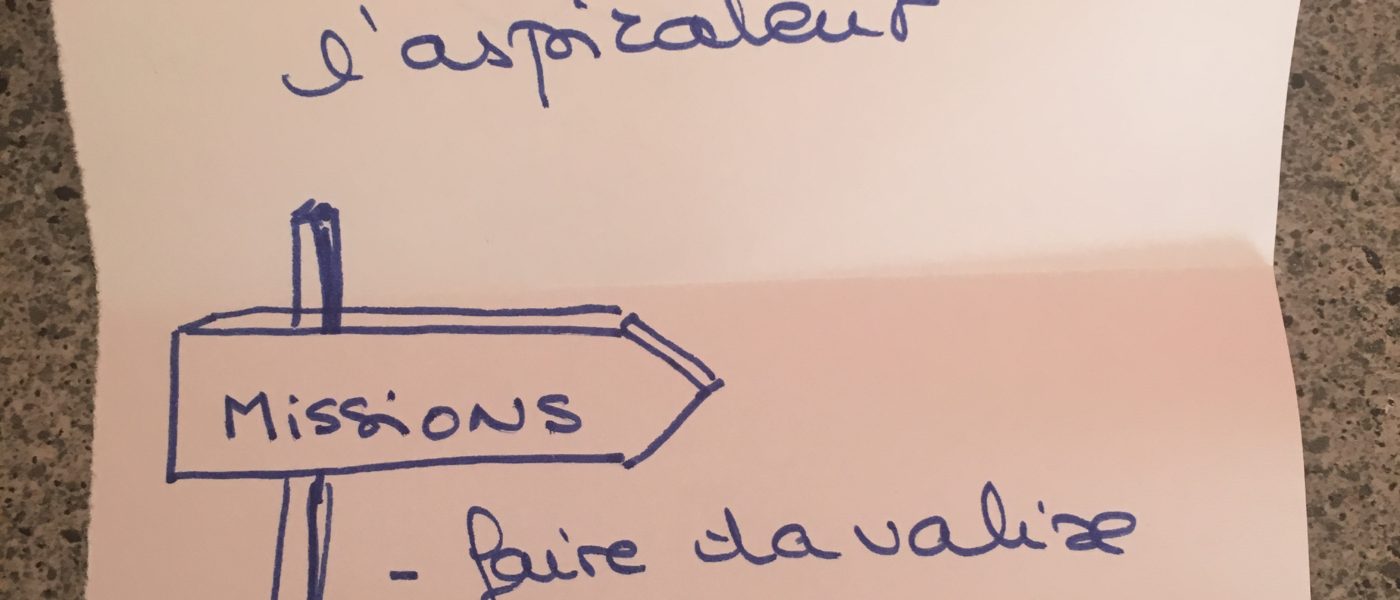 l'aspirateur
Missions
- faire la valise